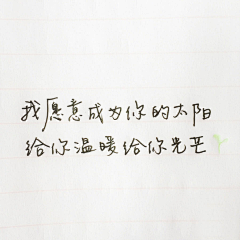 我愿意成为你的太阳
给你温暖给你光芒